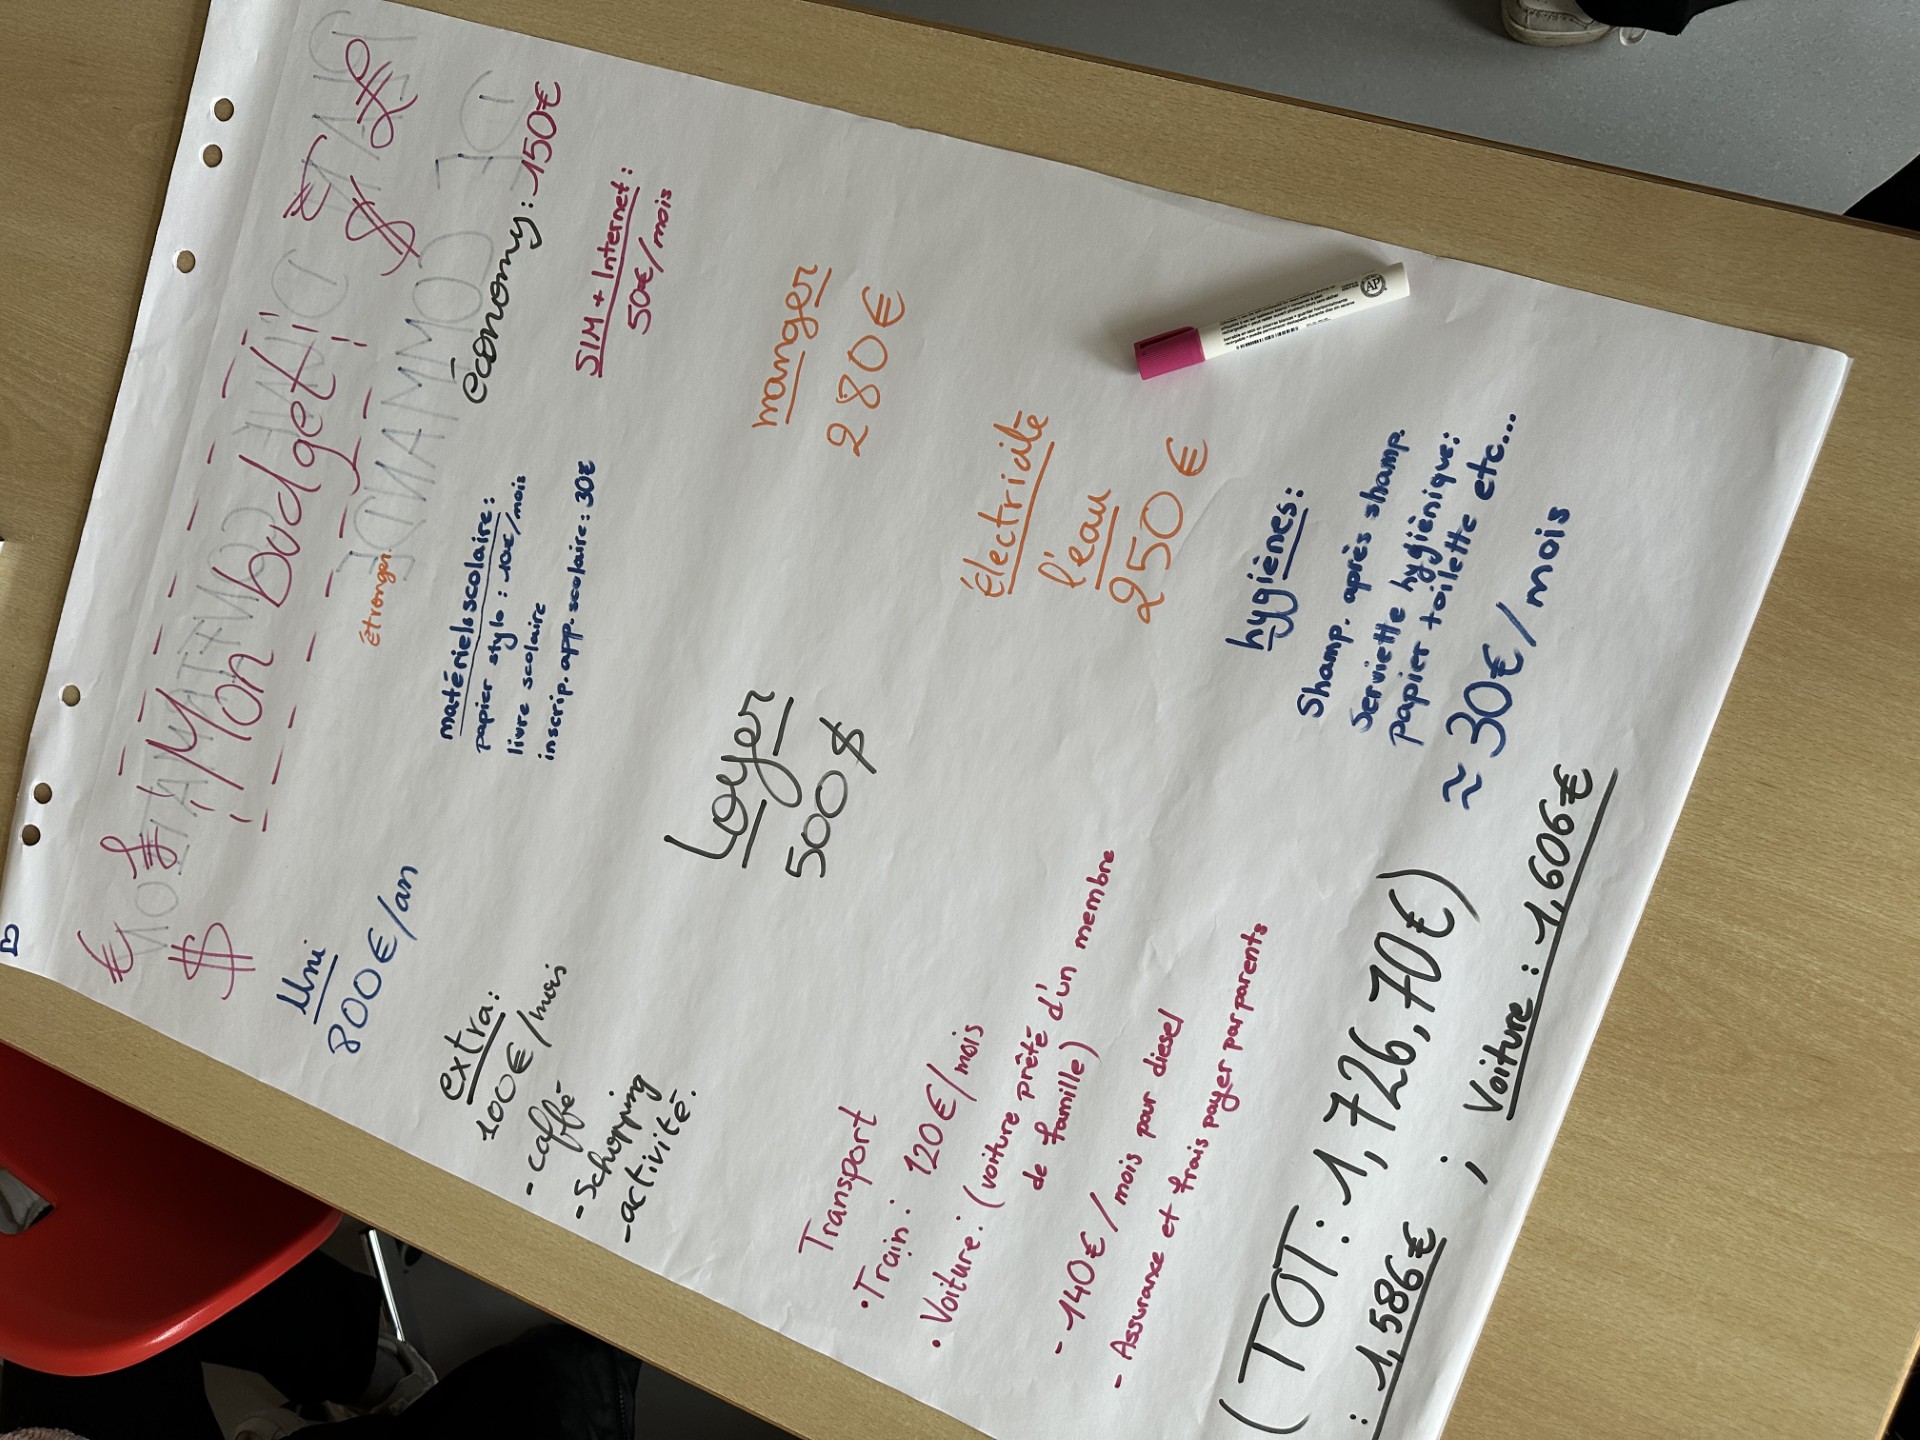 Mon budget
€
$
£
₹
$
£
Uni
800€/an
étranger
économy: 150€
extra:
100€/mois
- caffé
- Schopping
- activité.
matériel scolaire:
papier stylo : 10€/mois
livre scolaire
inscrip. app. scolaire: 30€
SIM + Internet:
50€/mois
Loyer
500$
manger
280€
Transport
• Train: 120€/mois
• Voiture: (voiture prêté d'un membre
de famille)
- 140€/mois pour diesel
- Assurance et frais payer par parents
électricité
l'eau
250€
hygiènes:
Shamp. après shamp.
Serviette hygiénique:
papier toilette etc...
≈ 30€/mois
(TOT: 1,726,70€)
: 1,586€ ; Voiture: 1,606€
AP